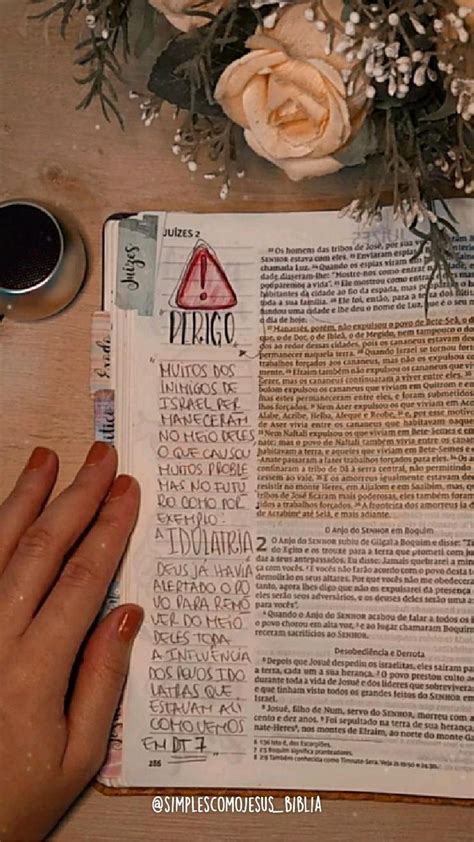 JUÍZES 2
Juízes
PERIGO
MUITOS DOS
INIMIGOS DE
ISRAEL PER
MANECERAM
NO MEIO DELES
O QUE CAUSOU
MUITOS PROBLE
MAS NO FUTU
RO COMO POR
EXEMPLO:
A IDOLATRIA
DEUS JÁ HAVIA
ALERTADO O PO
VO PARA REMO
VER DO MEIO
DELES TODA
A INFLUÊNCIA
DOS POVOS IDO
LATRAS QUE
ESTAVAM ALI
COMO VEMOS
EM DT 7
286
22 Os homens das tribos de José, por sua vez
SENHOR estava com eles. 23 Enviaram espias
chamada Luz. 24 Quando os espias viram um
dade, disseram-lhe: "Mostre-nos como entrar
pouparemos a vida". 25 Ele mostrou como entrar
habitantes da cidade ao fio da espada, mas
toda a sua família. 26 Ele foi, então, para a terra dos
fundou uma cidade e lhe deu o nome de Luz,
o dia de hoje.
27 Manassés, porém, não expulsou o povo de Bete-Seã, o
que, o de Dor, o de Ibleã, o de Megido, nem tampouco o
dos ao redor dessas cidades, pois os cananeus estavam
permanecer naquela terra. 28 Quando Israel se tornou
trabalhos forçados aos cananeus, mas não os expulsou
29 Efraim também não expulsou os cananeus que viviam em
Gezer, mas os cananeus continuaram a viver entre eles.
bulom expulsou os cananeus que viviam em Quitrom e
mas estes permaneceram entre eles, e foram submetidos
lhos forçados. 31 Nem Aser expulsou os que viviam em Aco,
Alabe, Aczibe, Helba, Afeque e Reobe, 32 e, por esse motivo
33 Nem Naftali expulsou os que viviam em Bete-Semes e em
nate; mas o povo de Naftali também vivia entre os cananeus
habitavam a terra, e aqueles que viviam em Bete-Semes e
Anate passaram a fazer trabalhos forçados para eles.
confinaram a tribo de Dã à serra central, não permitindo
ao vale. 35 E os amorreus igualmente estavam
resistir no monte Heres, em Aijalom e em Saalbim, mas,
tribos de José ficaram mais poderosas, eles também foram
lhos forçados. 36 A fronteira dos amorreus ia
de Acrabim até Selá, e mais adiante.
O Anjo do SENHOR em Boquim
2 O Anjo do SENHOR subiu de Gilgal a Boquim e disse:
do Egito e os trouxe para a terra que prometi com
dar a seus antepassados. Eu disse: Jamais quebrarei a
ça com vocês. 2 E vocês não farão acordo com o povo desta
demolirão os seus altares. Por que vocês não me
deceram? 3 Portanto, agora lhes digo que não os expulsarei da presença
eles serão seus adversários, e os deuses deles serão uma
para vocês".
4 Quando o Anjo do SENHOR acabou de falar a todos os
o povo chorou em alta voz, 5 e ao lugar chamaram Boquim.
receram sacrifícios ao SENHOR.
Desobediência e Derrota
6 Depois que Josué despediu os israelitas, eles saíram
a terra, cada um a sua herança. 7 O povo prestou culto
durante toda a vida de Josué e dos líderes que sobreviveram
e que tinham visto todos os grandes feitos do SENHOR em
Israel.
8 Josué, filho de Num, servo do SENHOR, morreu com
cento e dez anos. 9 Foi sepultado na terra de sua herança,
nate-Heres, nos montes de Efraim, ao norte do monte
1:36 Isto é, dos Escorpiões.
2:5 Boquim significa pranteadores.
2:9 Também conhecida como Timnate-Sera. Veja 19.50 e 24.30.
@SIMPLESCOMOJESUS_BIBLIA